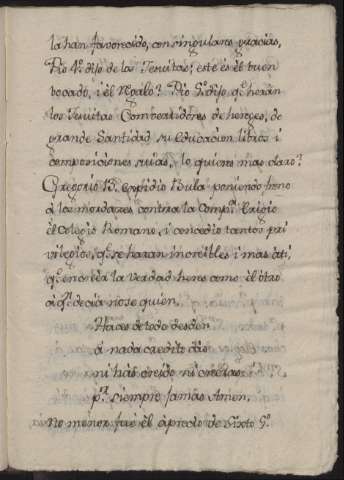 la han favorecido, con singulares gracias,
Pio 4º. dijo de los Jesuitas; este es el buen
bocado, i él Regalo? Pio 5º. dijo qe. heran
los Jesuitas Combatidores de hereges, de
grande Santidad su educacion libros i
composiciones suias, lo quieres mas claro?
Gregorio 13. Expidio Bula poniendo freno
á los mordazes contra la Compª. Erigio
él Colegio Romano, i concedio tantos pri
vilegios, qe. se haran increibles i mas á ti
qe. en creer la verdad heres como él otro
á qn. decia no se quien.
Haces de todo desden
á nada credito das
ni hás creido ni creerás
pr. siempre jamas Amen.
No menor fue él aprecio de Sixto 5º.